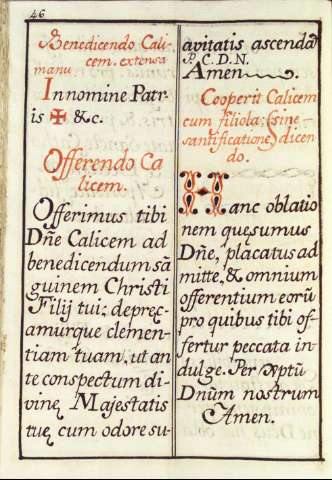 46
Benedicendo Cali-
cem. extensa
manu
In nomine Patr-
is ✠ &c.
Offerendo Ca
licem.
Offerimus tibi
Dñe Calicem ad
benedicendum sã
guinem Christi
Filij tui: deprę-
amurque clemen-
tiam tuam, ut an
te conspectum di-
vinę Majestatis
tuę cum odore su-
avitatis ascendat
P. C. D. N.
Amen.
Cooperit Calicem
cum filiola: (sine
santificatione) dicen
do.
Hanc oblatio
nem quęsumus
Dñe, placatus ad
mitte, & omnium
offerentium eorũ
pro quibus tibi of-
fertur peccata in
dulge. Per xptũ
Dnũm nostrum
Amen.